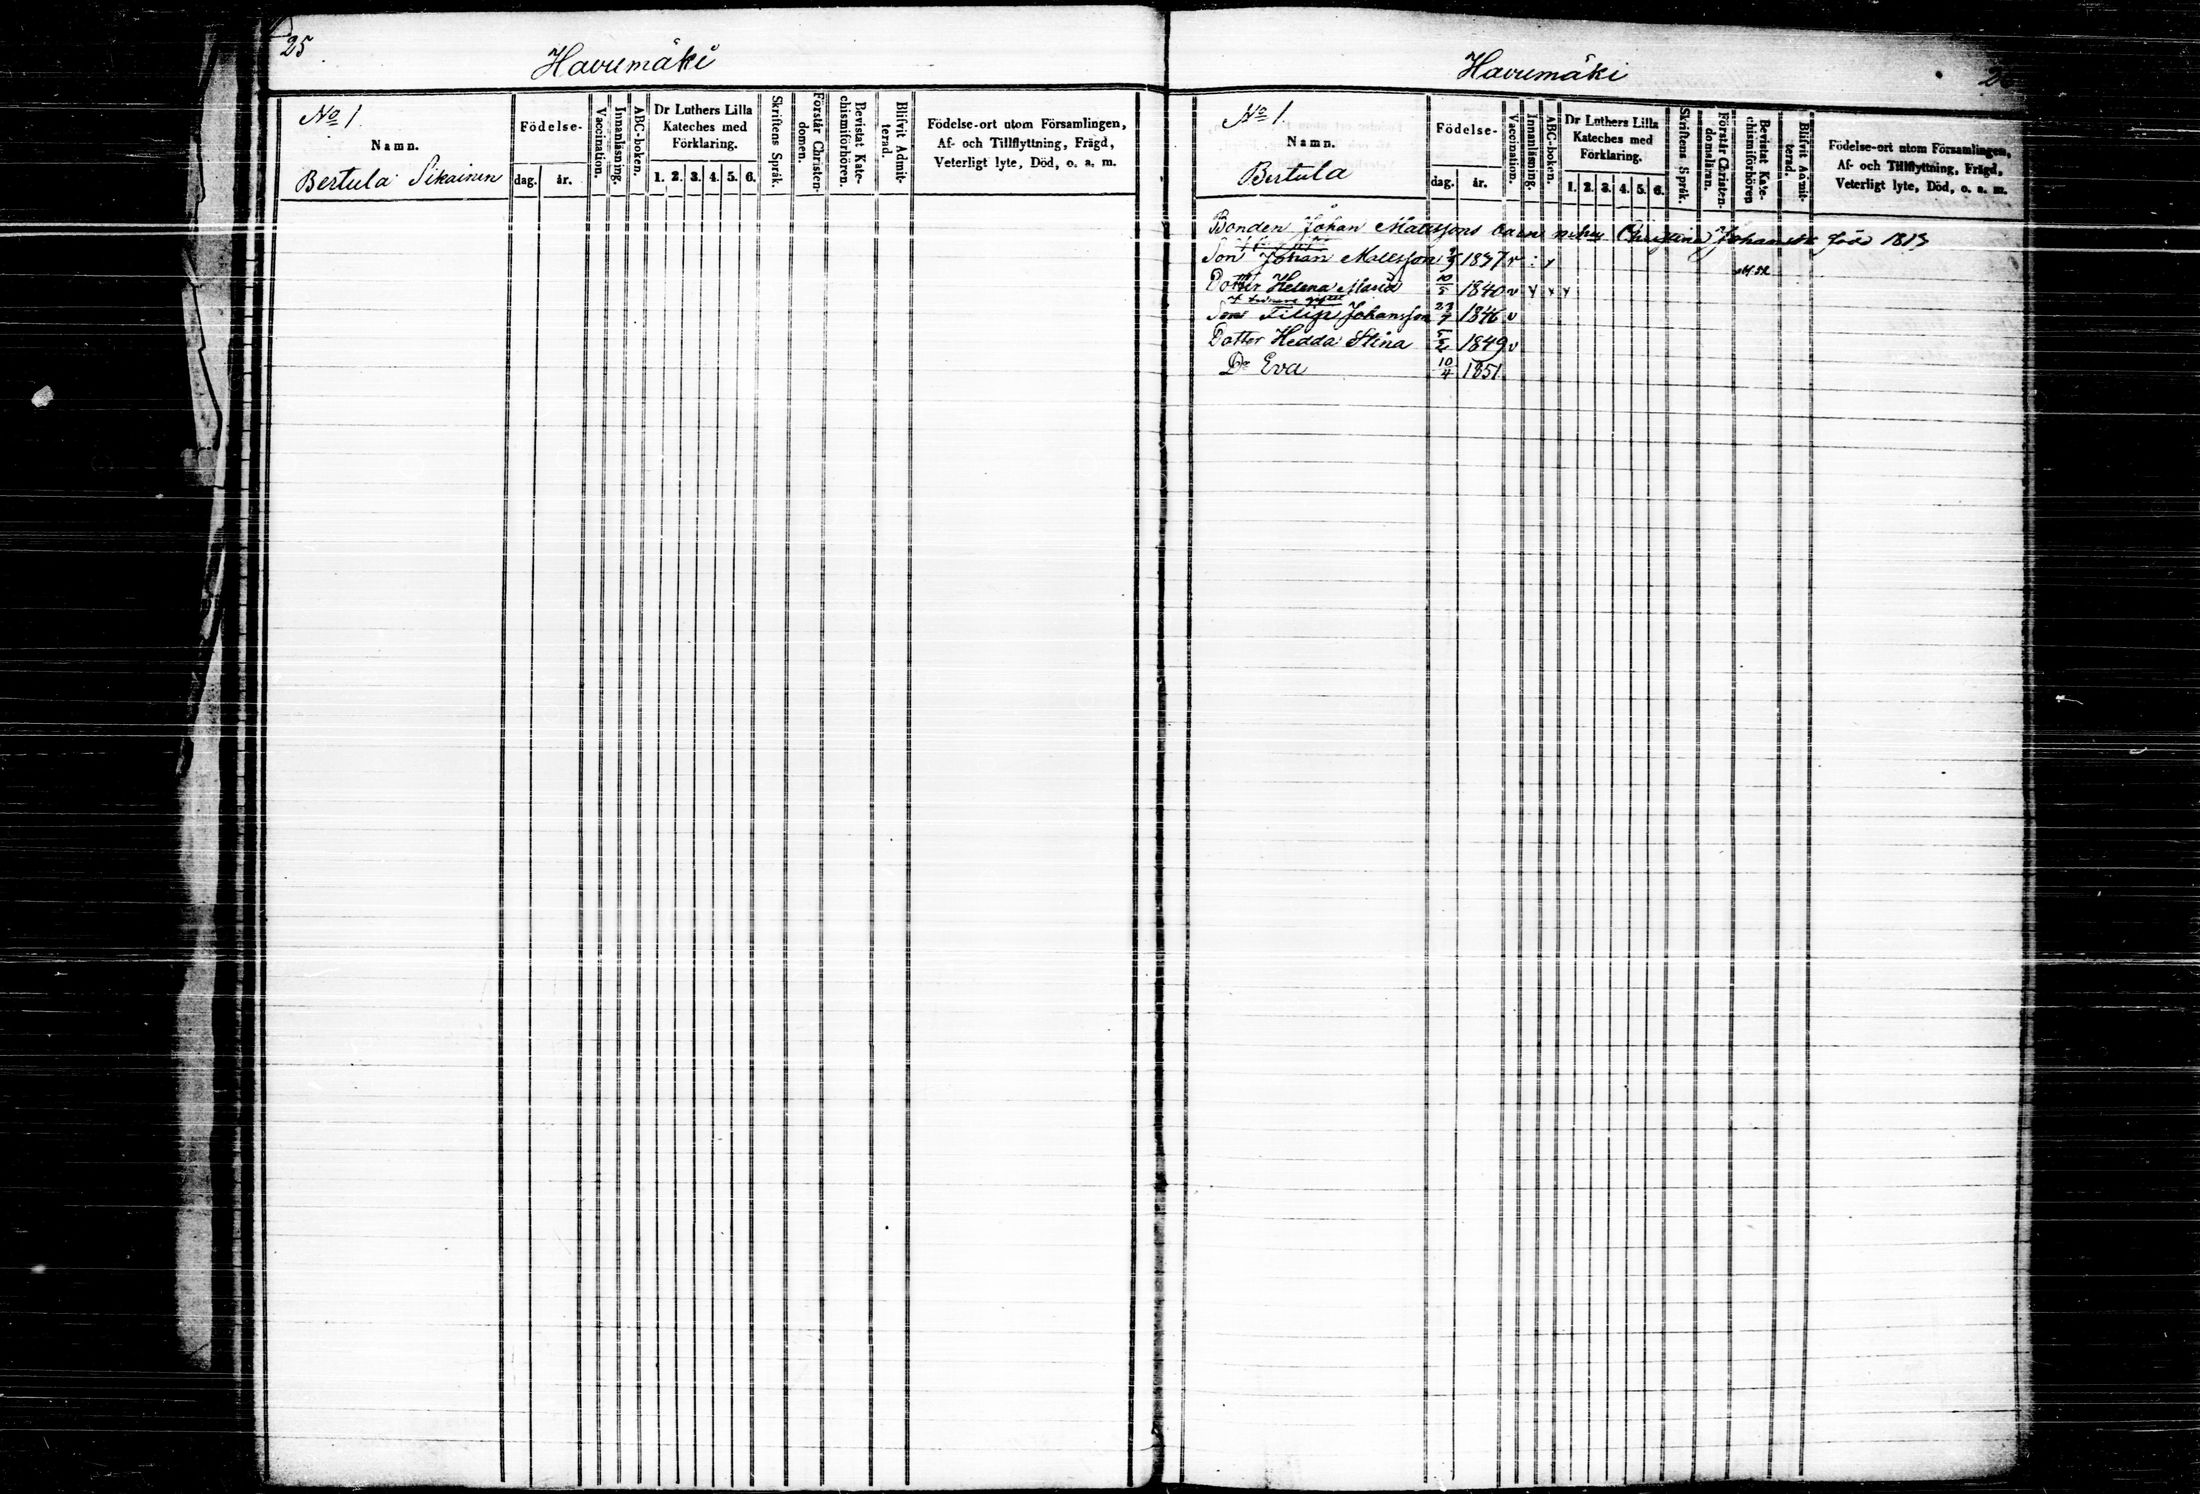 25
Havumäki
No 1.
Namn.
Bertula Sikainen
Födelse-
dag. år.
Vaccination.
Innanläsning.
ABC-boken.
Dr Luthers Lilla
Kateches med
Förklaring.
1. 2. 3. 4. 5. 6.
Skriftens Språk.
Förstår Christen-
domen.
Bevistat Kate-
chismiförhören.
Blifvit Admit-
terad.
Födelse-ort utom Församlingen,
Af- och Tillflyttning, Frägd,
Veterligt lyte, Död, o. a. m.
Havumäki
No 1.
Namn.
Bertula
Födelse-
dag. år.
Vaccination.
Innanläsning.
ABC-boken.
Dr Luthers Lilla
Kateches med
Förklaring.
1. 2. 3. 4. 5. 6.
Skriftens Språk.
Förstår Christen-
domsläran.
Bevistat Kate-
chismiförhören
Blifvit Admit-
terad.
Födelse-ort utom Församlingen,
Af- och Tillflyttning, Frägd,
Veterligt lyte, Död, o. a. m.
Bonden Johan Mattssons barn Christina född 1813
Son Johan Mattsson 1837 v
Dotter Helena Maria 10/5 1840 v
Son Filip Johansson 1846 v
Dotter Hedda Stina 1849 v
Do Eva 10/4 1851